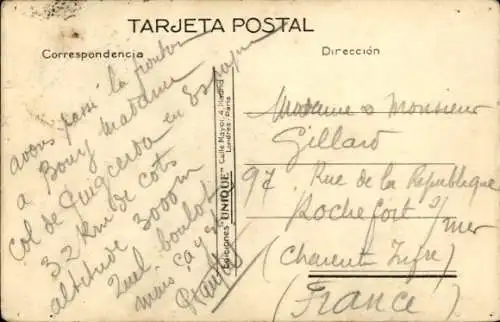 TARJETA POSTAL
Correspondencia
Dirección
avons passé la frontière
a Bourg Madame
Col de Puigcerda en Espagne
32 Km de cots
altitude 3000m
Quel boulot
mais ça y est
Ediciones "UNIQUE" Calle Mayor, 4, Madrid
Londres - Paris
Madame & Monsieur
Gillard
97 Rue de la Republique
Rochefort s/
mer
(Charente Infre)
(France)